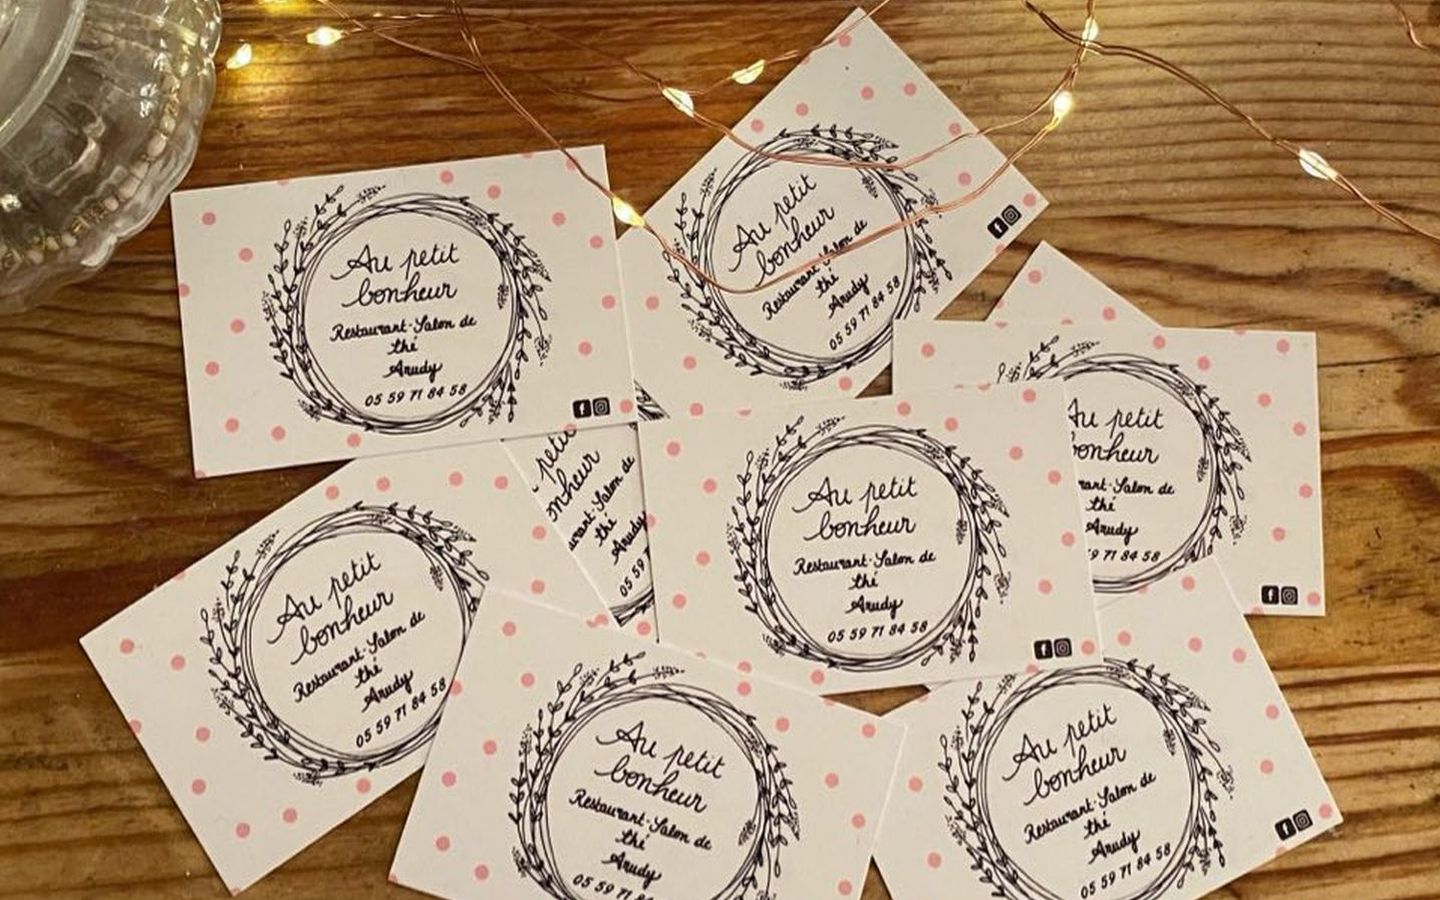 Au petit
bonheur
Restaurant-Salon de
thé
Arudy
05 59 71 84 58
Au petit
bonheur
Restaurant-Salon de
thé
Arudy
05 59 71 84 58
Au petit
bonheur
rant-Salon de
thé
Arudy
59 71 84 58
petit
onheur
urant-Salon de
thé
Arudy
05 59 7
Au petit
bonheur
Restaurant-Salon de
thé
Arudy
05 59 71 84 58
Au petit
bonheur
Restaurant-Salon de
thé
Arudy
05 59 71 84 58
Au petit
bonheur
Restaurant-Salon de
thé
Arudy
05 59 71 84 58
Au petit
bonheur
Restaurant-Salon de
thé
Arudy
05 59 71 8